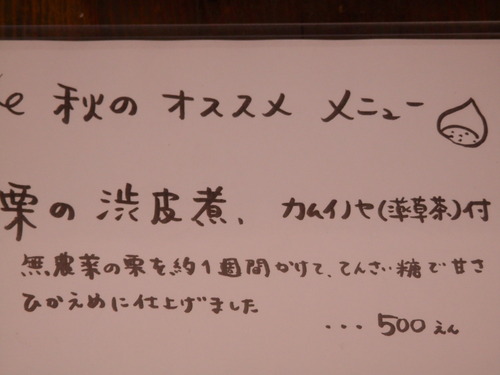 秋の オススメ メニュー
栗の 渋皮煮、 カムイノセ(薬草茶)付
無農薬の栗を約1週間かけて、てんさい糖で甘さ
ひかえめに仕上げました
... 500えん